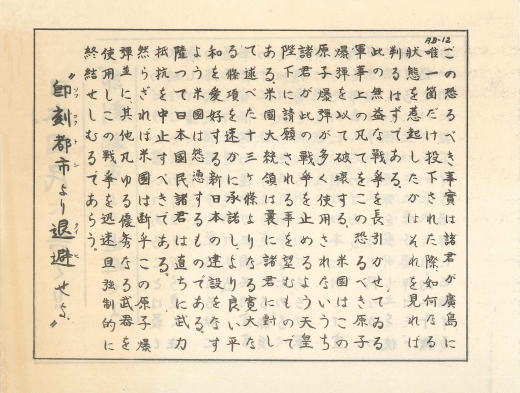 AB-12
この恐るべき事實は諸君が廣島に
唯一箇だけ投下された際如何なる
狀態を惹起したかはそれを見れば
判るはずである。
此の無益な戰爭を長引かせてゐる
軍事上の凡てをこの恐るべき原子
爆彈を以て破壞する。米國はこの
原子爆彈が多く使用されないうち
諸君が此の戰爭を止めるよう天皇
陛下に請願される事を望むもので
ある。米國大統領は曩に諸君に對し
て述べた十三ヶ條よりなる寬大な
る條項を速かに承諾しより良い平
和を愛好する新日本の建設をなす
よう米國は慫慂するものである。
陸つて日本國民諸君は直ちに武力
抵抗を中止すべきである。
然らざれば米國は斷乎この原子爆
彈並に其他凡ゆる優秀なる武器を
使用しこの戰爭を迅速且强制的に
終結せしむるであらう。
“即刻都市より退避せよ”
ソツコクトシ
タイヒ